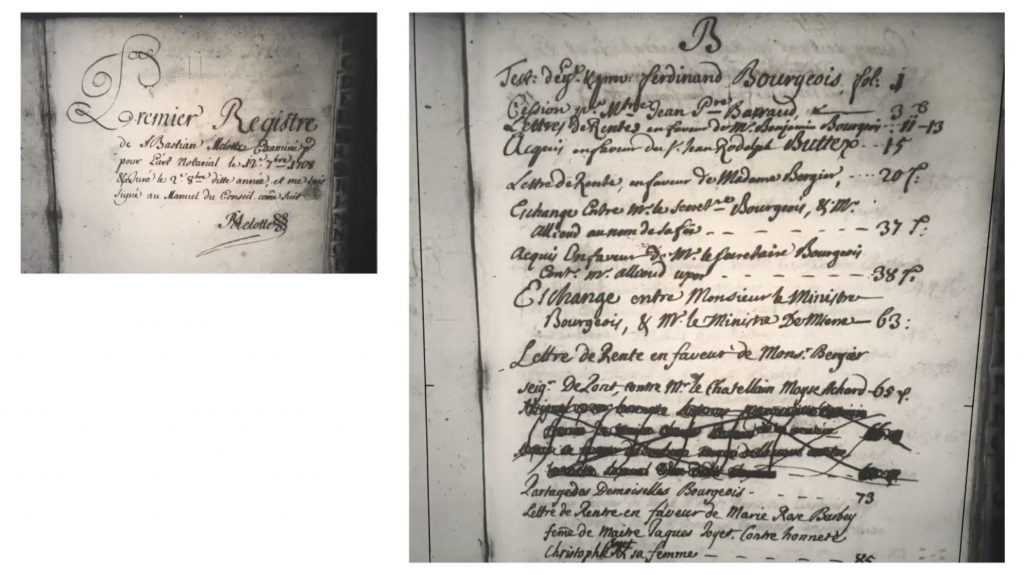 Premier Registre
de Sr. Bastian Melotte Examiné pr.
pour l'art Notarial le 12e 7bre 1708
le 2e 8bre ditte année, et me suis
signé au Manuel du Conseil come suit
BMelotte
B
Test: Ferdinand Bourgeois, fol: 1
Cession pr. Mtre Jean Pre Barraud, 3
Lettres de Rentes en faveur de Mr. Benjamin Bourgeois 11-13
Acquis en faveur du Sr. Jean Rodolph Buttex 15
Lettre de Rente, en faveur de Madame Bergier, 20
Eschange Entre Mr. le Secret.re Bourgeois, & Mr.
au nom de sa 37
Acquis En faveur de Mr. le Secretaire Bourgeois
Cont. Mr. 38
Eschange entre Monsieur le Ministre
Bourgeois, & Mr. le Ministre De 63:
Lettre de Rente en faveur de Monsr. Bergier
seigr. De Pont, contre Mr. le Chatellain Moyse Achard 65
Partage des Demoiselles Bourgeois 73
Lettre de Rentre en faveur de Marie Rose Barbey
feme de Maitre Jaques Joyet, Contre honneté
Christophle sa femme 85